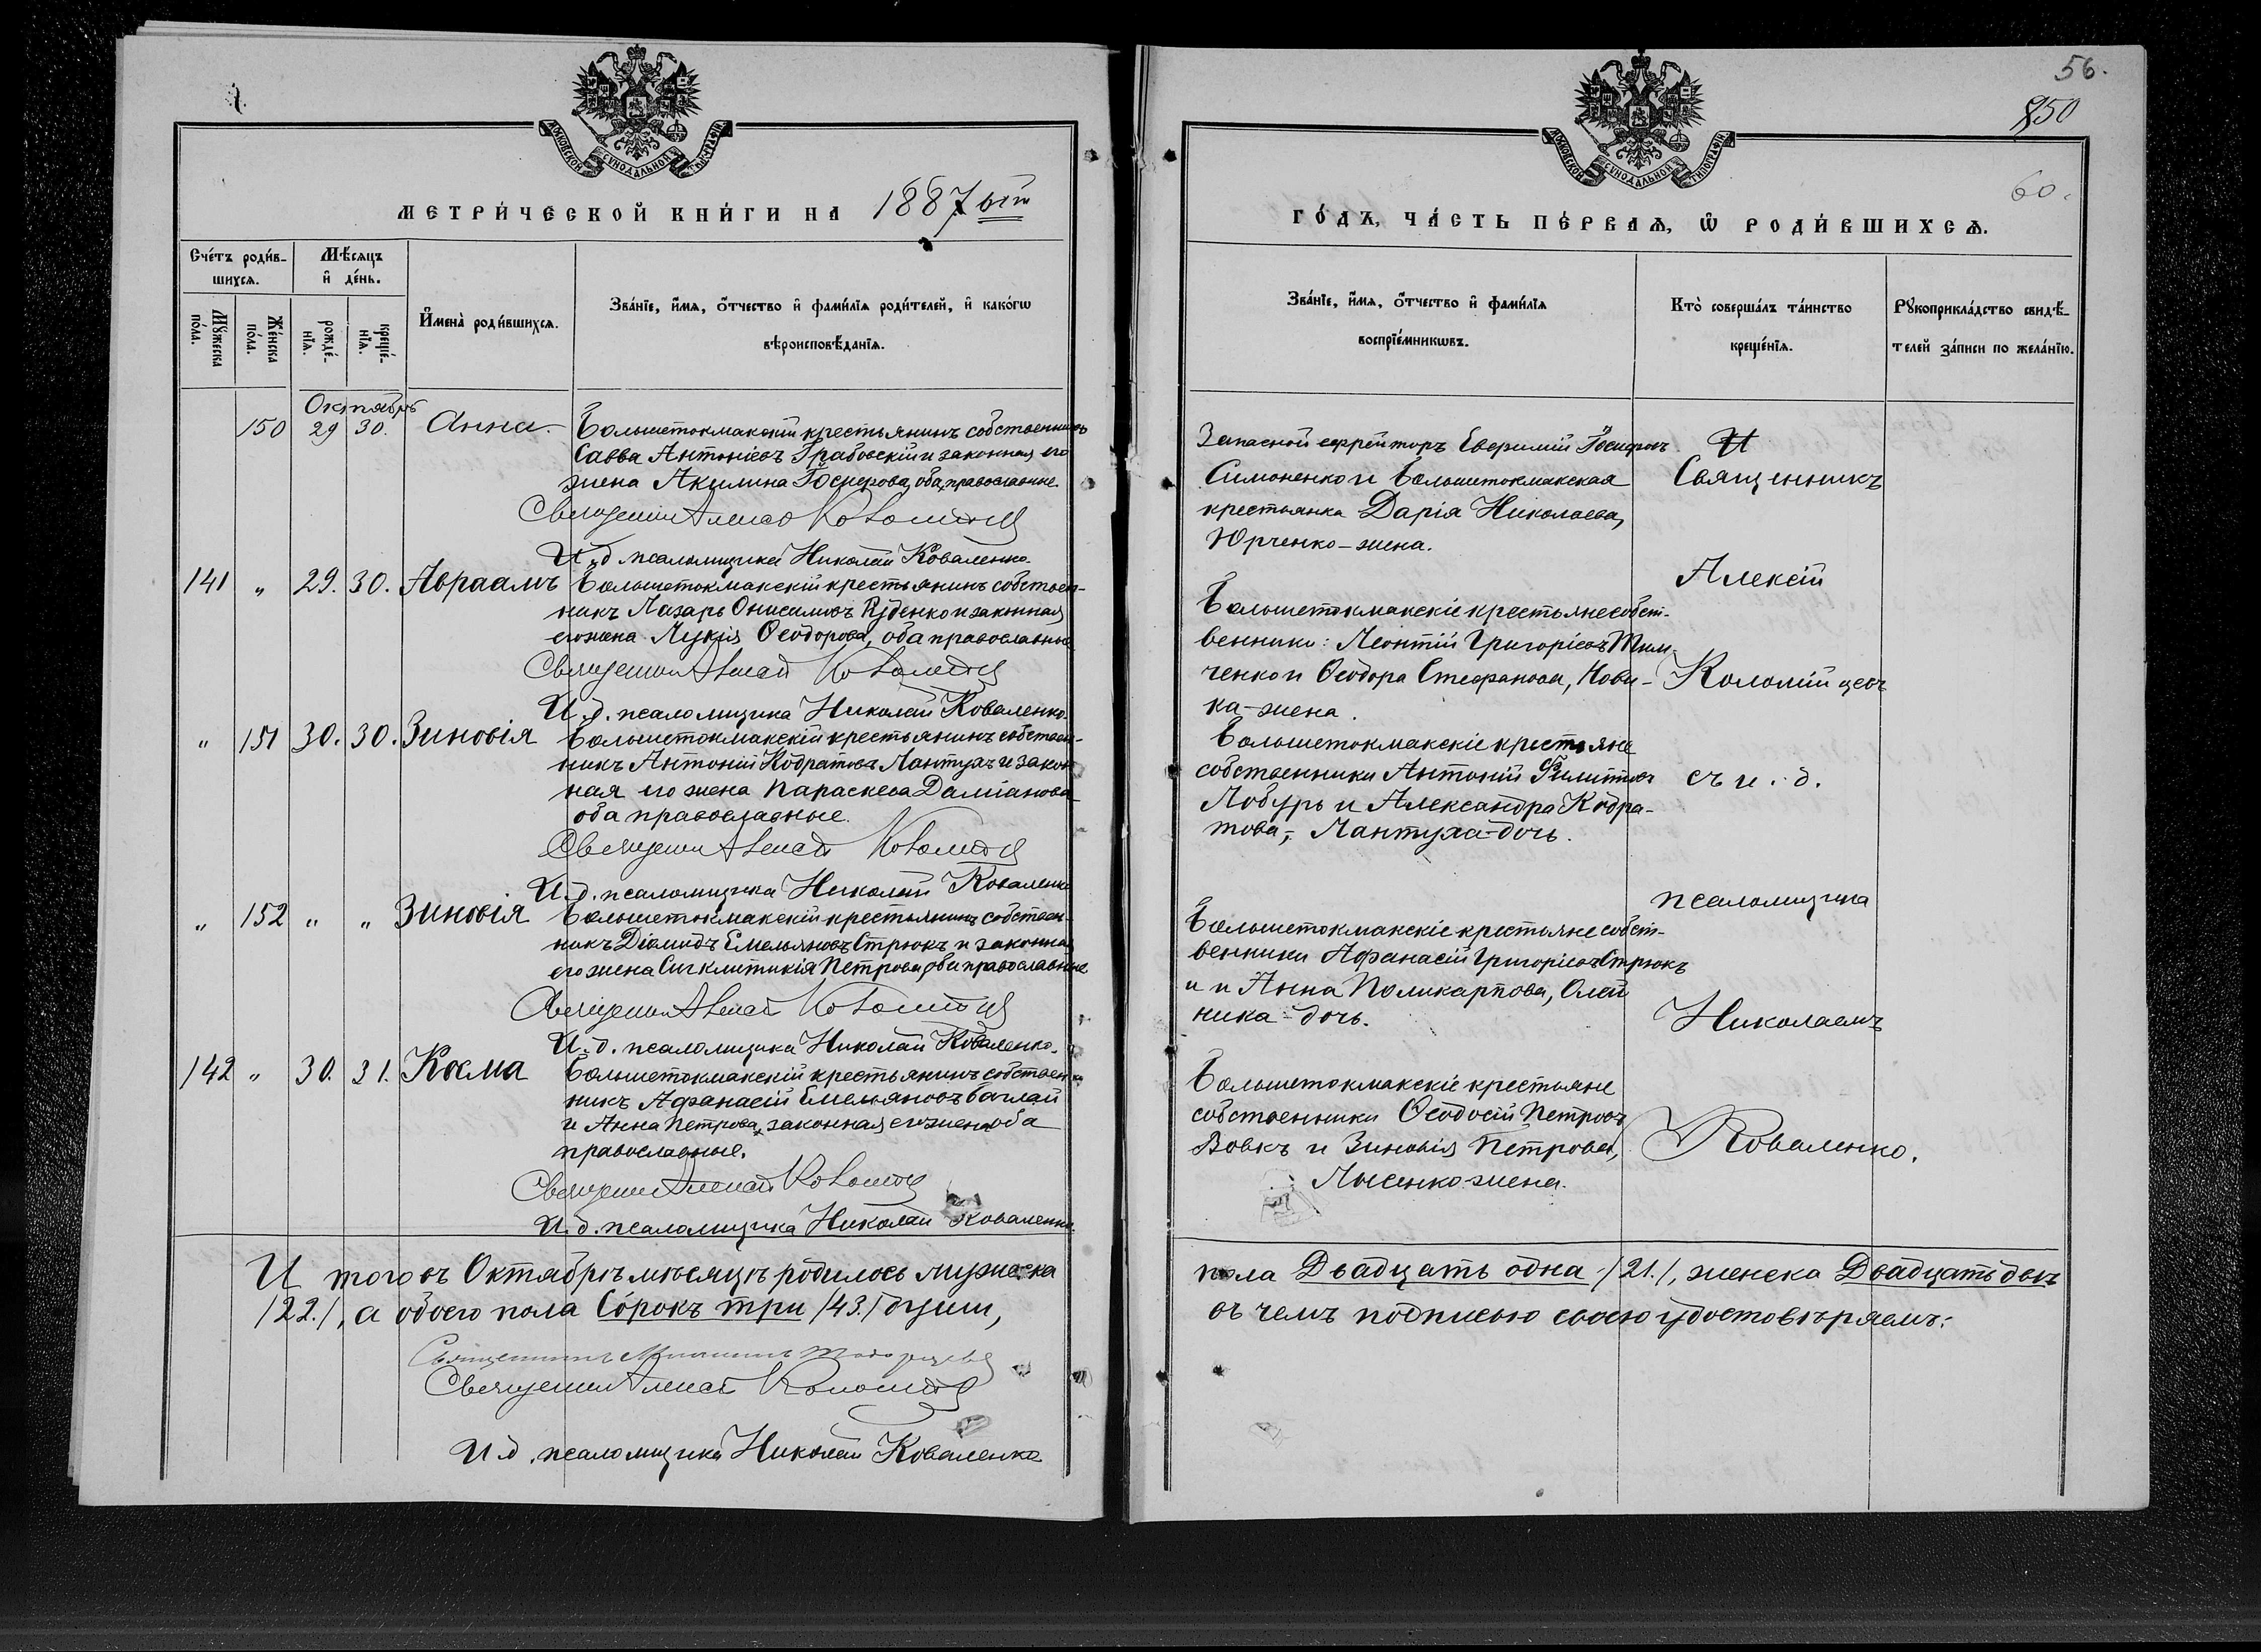 МОСКОВСКОЙ СѴНОДАЛЬНОЙ ТИПОГРАФІИ
МЕТРИ́ЧЕСКОЙ КНИ́ГИ НА 1887 ый
Сче́тъ роди́в-
шихсѧ.
Мѣ́сяцъ
и҆ де́нь.
Мꙋ́жеска
по́ла.
Же́нска
по́ла.
рожде́-
нїѧ.
креще́-
нїѧ.
И҆мена̀ роди́вшихсѧ.
Зва́нїе, и҆́мѧ, ѻ҆́тчество и҆ фами́лїѧ роди́телей, и҆ како́гѡ
вѣроисповѣ́данїѧ.
Октябрь
150 29 30. Анна. Большетокмакскій крестьянинъ собственникъ
Савва Антоніевъ Грабовскій и законная его
жена Акилина Іосифова, оба православные.
Священникъ Алексій Коломійцев
И. д. псаломщика Николай Коваленко.
141 „ 29. 30. Авраамъ Большетокмакскій крестьянинъ собствен-
никъ Лазарь Онисимовъ Руденко и законная
его жена Лукія Ѳеодорова, оба православные
Священникъ Алексій Коломійцев
И. д. псаломщика Николай Коваленко.
„ 151 30. 30. Зиновія Большетокмакскій крестьянинъ собствен-
никъ Антоній Кодратовъ Лантухъ и закон-
ная его жена Параскева Даміанова
оба православные.
Священникъ Алексій Коломійцев
И. д. псаломщика Николай Коваленко
„ 152 „ „ Зиновія Большетокмакскій крестьянинъ собствен-
никъ Діомидъ Емельяновъ Стрюкъ и законная
его жена Сигклитикія Петрова, оба православные
Священникъ Алексій Коломійцев
И. д. псаломщика Николай Коваленко.
142 „ 30. 31. Косма Большетокмакскій крестьянинъ собствен-
никъ Афанасій Емельяновъ Баглай
и Анна Петрова, законная его жена оба
православные.
Священникъ Алексій Коломійцев
И. д. псаломщика Николай Коваленко.
И того въ Октябрѣ мѣсяцѣ родилось мужеска
/22./, а обоего пола Сорокъ три /43./ души,
Священникъ
Священникъ Алексій Коломійцев
И. д. псаломщика Николай Коваленко
56.
850
60.
МОСКОВСКОЙ СѴНОДАЛЬНОЙ ТИПОГРАФІИ
ГО́ДЪ, ЧА́СТЬ ПЕ́РВАѦ, Ѡ҆ РОДИ́ВШИХСѦ.
Зва́нїе, и҆́мѧ, ѻ҆́тчество и҆ фами́лїѧ
воспрїе́мникѡвъ.
Кто̀ соверша́лъ та́инство
креще́нїѧ.
Рꙋкоприкла́дство свидѣ́-
телей за́писи по жела́нїю.
Запасной ефрейторъ Евфимій Іосифовъ
Симоненко и Большетокмакская
крестьянка Дарія Николаева,
Юрченко - жена.
Большетокмакскіе крестьяне собст-
венники: Леонтій Григоріевъ Тим-
ченко и Ѳеодора Стефанова, Нови-
ка - жена.
Большетокмакскіе крестьяне
собственники Антоній Филиповъ
Лобурь и Александра Кодра-
това, - Лантуха - дочь.
Большетокмакскіе крестьяне собст-
венники Афанасій Григоріевъ Стрюкъ
и и Анна Поликарпова, Олей
ника - дочь.
Большетокмакскіе крестьяне
собственники Ѳеодосій Петровъ
Вовкъ и Зиновія Петрова,
Лысенко жена.
И
Священникъ
Алексій
Коломійцевъ
съ и. д.
псаломщика
Николаемъ
Коваленко.
пола Двадцать одна /21./, женска Двадцать двѣ
въ чемъ подписью своею удостовѣряемъ: